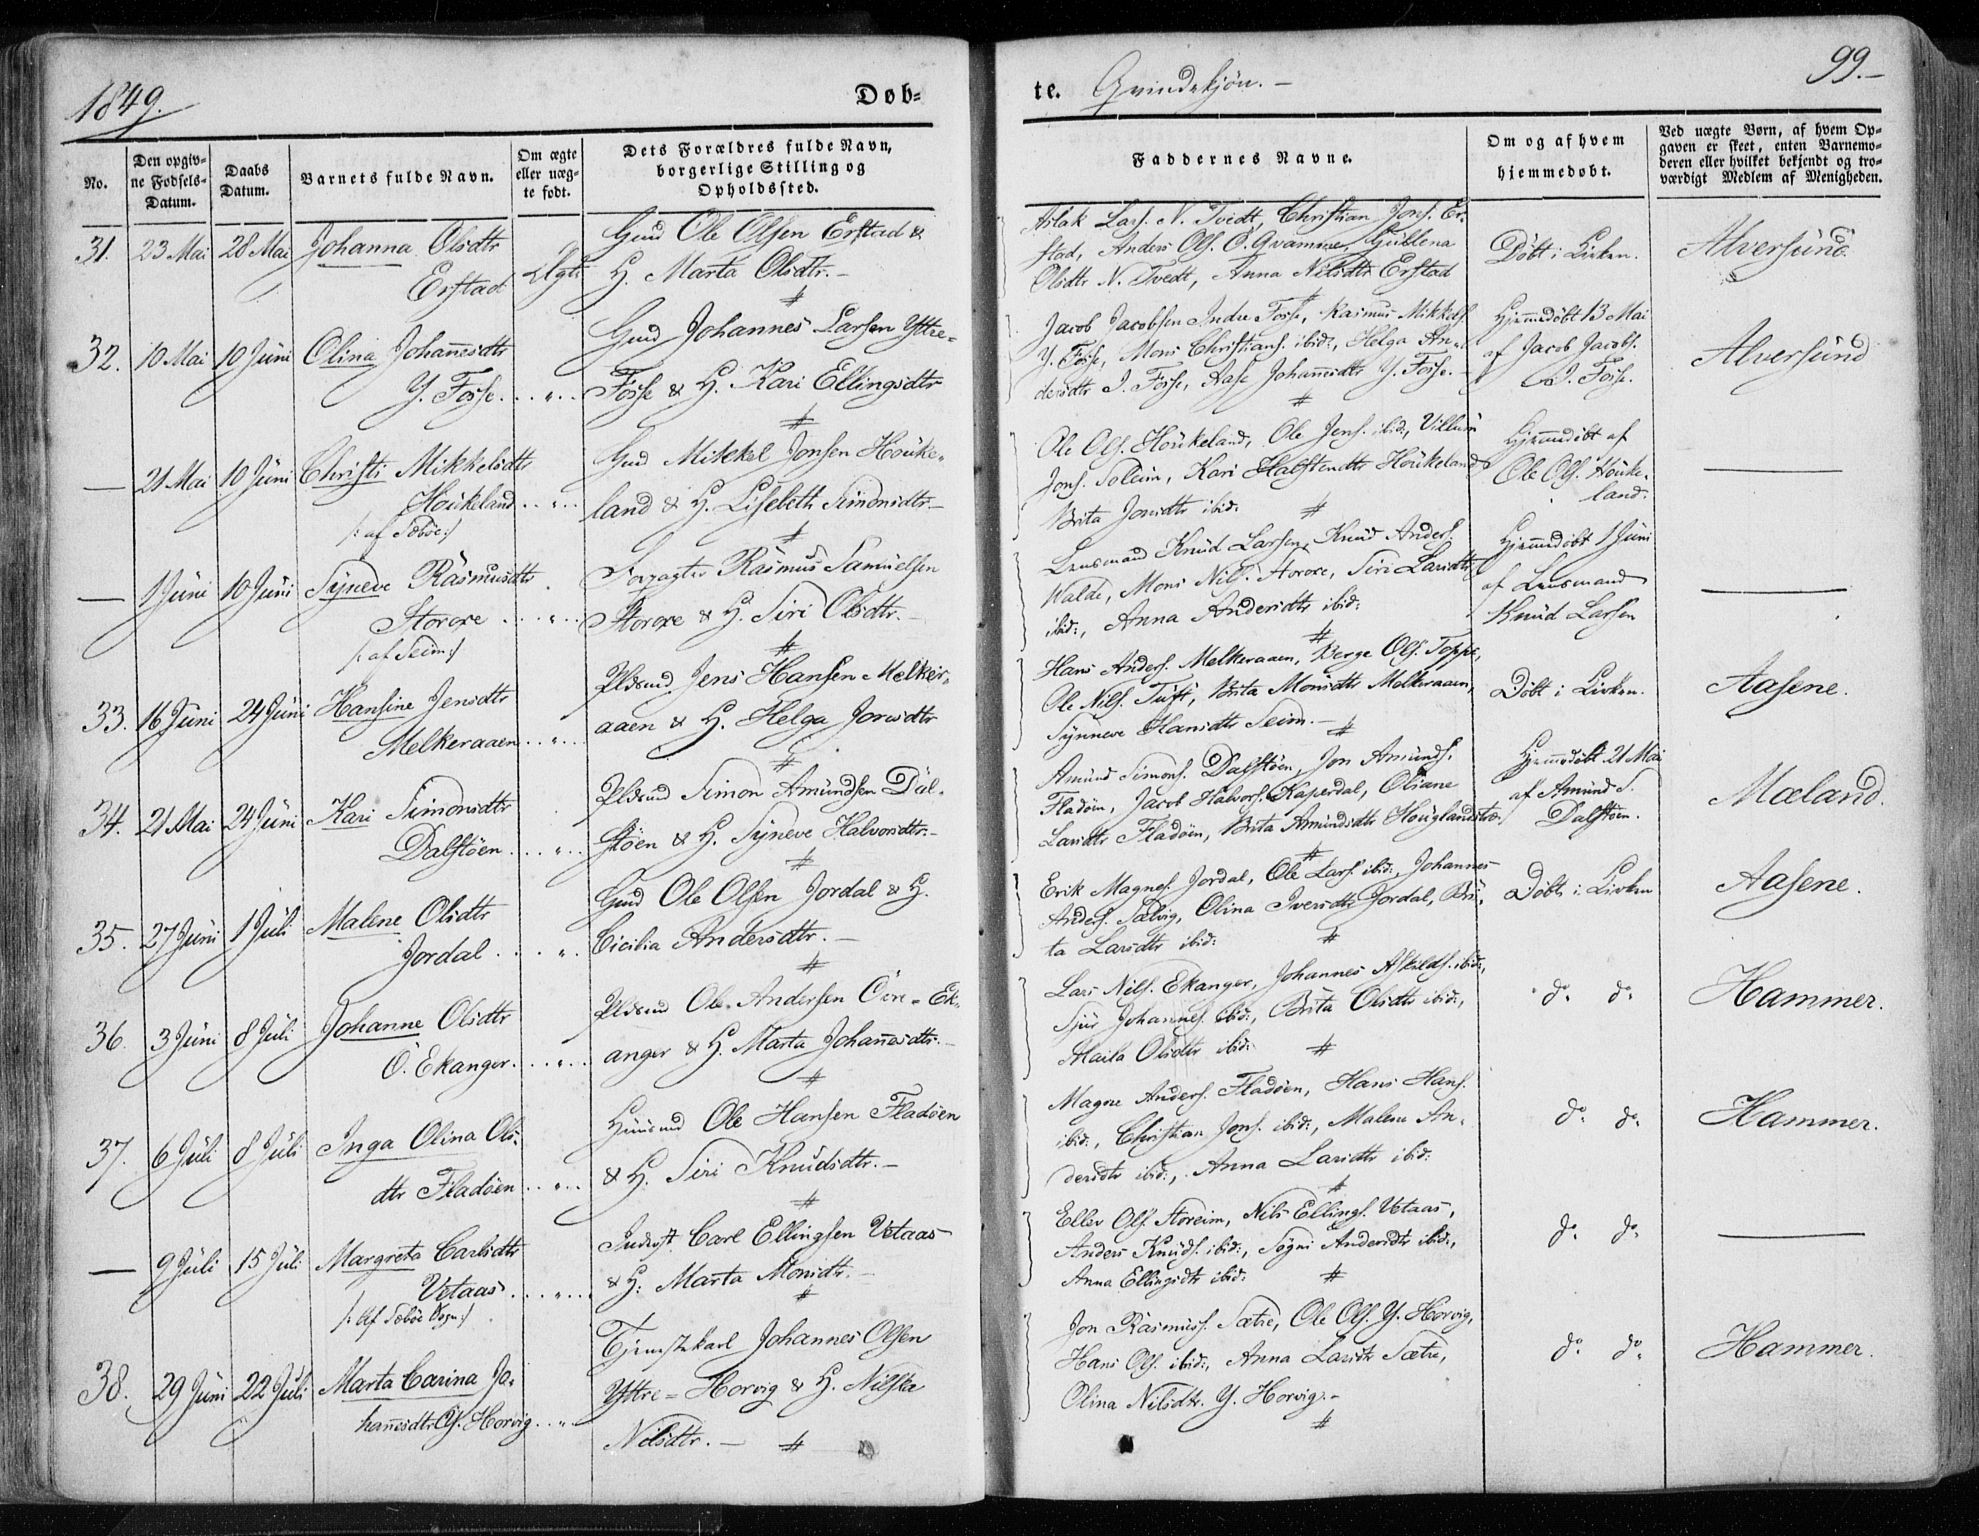 1849.
Døb-
No.
Den opgiv-
ne Fødsels-
Datum.
Daabs
Datum.
Barnets fulde Navn.
Om ægte
eller uæg-
te født.
Dets Forældres fulde Navn,
borgerlige Stilling og
Opholdssted.
31. 23 Mai 28 Mai Johanna Olsdtr
Erstad
Gmd Ole Olsen Erstad &
H. Marta Olsdtr.-
32. 10 Mai 10 Juni Olina Johansdtr
Y. Fosse. . . " . .
Gmd Johannes Larsen Yttre-
Fosse & H. Kari Ellingsdtr
— 21 Mai 10 Juni Christi Mikkelsdtr
Houkeland . . " . .
/: af Sæbøe:/
Gmd Mikkel Jonsen Houke-
land & H. Lisebeth Simonsdtr.-
— 1 Juni 10 Juni Synneve Rasmusdtr
Storoxe . . . " . .
/: af Seim:/
Forpagter Rasmus Samuelsen
Storoxe & H. Siri Olsdtr.-
33. 16 Juni 24 Juni Hansine Jensdtr
Melkeraaen . . " . .
Pldsmd Jens Hansen Melker-
aaen & H. Helga Jonsdtr
34. 21 Mai 24 Juni Kari Simonsdtr
Dalstöen . . . " . .
Pldsmd Simon Amundsen Dal-
stöen & H. Syneve Halvorsdtr.-
35. 27 Juni 1 Juli Malene Olsdtr
Jordal . . . " .
Gmd Ole Olsen Jordal & H.
Cicilia Andersdtr.-
36. 3 Juni 8 Juli Johanne Olsdtr
Ö. Ekanger. . . " . .
Pldsmd Ole Andersen Övre-Ek-
anger & H. Marta Johansdtr.-
37. 6 Juli 8 Juli Inga Olina Ols-
dtr Fladöen . . " . .
Huusmd Ole Hansen Fladöen
& H. Siri Knudsdtr.-
— 9 Juli 15 Juli Margreta Carlsdtr
Vetaas . . . " . .
/: af Sæbøe Sogn:/
Inderst Carl Ellingsen Vetaas
& H: Marta Monsdtr.-
38. 29 Juni 22 Juli Marta Carina Jo-
hansdtr Y. Horvig . . " . .
Tjenestekarl Johannes Olsen
Yttre-Horvig & H. Nilsta
Nilsdtr.-
te. Qvindekjön.-
99.-
Faddernes Navne.
Om og af hvem
hjemmedøbt.
Ved uægte Børn, af hvem Op-
gaven er skeet, enten Barnemo-
deren eller hvilket bekjendt og tro-
værdigt Medlem af Menigheden.
Aslak Lars. N. Tvedt, Christian Jons. Er-
stad, Anders Ols. Ö. Qvamme, Gublena
Olsdtr N. Tvedt, Anna Nilsdtr Erstad
Döbt i Kirken.
Alversund
Jacob Jacobsen Indre Fosse, Rasmus Mikkels.
Y. Fosse, Mons Christians. ibid:, Helga An-
dersdtr I. Fosse, Aase Johansdtr Y. Fosse.-
Hjemmedöbt 13 Mai
af Jacob Jacobs.
I. Fosse.
Alversund
Ole Ols. Houkeland, Ole Jens. ibid:, Villum
Jons. Soleim, Kari Halstendtr Houkeland
Brita Jonsdtr ibid:
Hjemmedöbt af
Ole Ols. Houke-
land.
—
Lensmand Knud Larsen, Knud Anders.
Walde, Mons Nils. Storoxe, Siri Larsdtr
ibid:, Anna Andersdtr ibid:
Hjemmedöbt 1 Juni
af Lensmand
Knud Larsen
—
Hans Anders. Melkeraaen, Berge Ols. Toppe,
Ole Nils. Tuft, Brita Monsdtr Melkeraaen,
Synneve Hansdtr Seim.-
Döbt i Kirken.
Aasene.
Amund Simons. Dalstöen, Jon Amunds.
Fladöen, Jacob Halvors. Kaperdal, Oliane
Larsdtr Fladöen, Brita Amundsdtr Houglandstræ.
Hjemmedöbt 21 Mai
af Amund S.
Dalstöen.
Mæland.
Erik Magnes. Jordal, Ole Lars. ibid:, Johannes
Anders. Sælvig, Olina Iversdtr Jordal, Bri-
ta Larsdtr ibid:
Döbt i Kirken
Aasene.
Lars Nils. Ekanger, Johannes Askilds. ibid:,
Sjur Johannes. ibid:, Brita Olsdtr ibid:,
Marta Olsdtr ibid:
do do
Hammer.
Magne Anders. Fladöen, Hans Hans.
ibid:, Christian Jons. ibid:, Malene An-
dersdtr ibid:, Anna Larsdtr ibid:
do do
Hammer.
Eller Ols. Storeim, Nils Ellings. Vetaas,
Anders Knuds. ibid:, Sögni Andersdtr ibid:,
Anna Ellingsdtr ibid:
do do
—
Jon Rasmuss. Sætre, Ole Ols. Y. Horvig,
Hans Ols. ibid:, Anna Larsdtr Sætre,
Olina Nilsdtr. Y. Horvig.-
do do
Hammer.